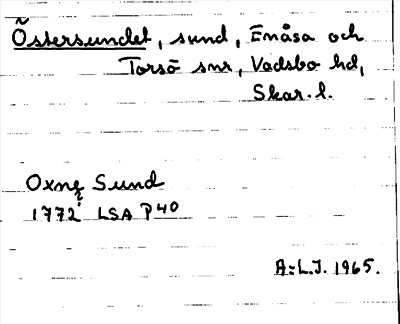 Östersundet, sund, Enåsa och
Torsö snr, Vadsbo hd,
Skar. l.
Oxne Sund
1772 LSA P40
A:L.J. 1965.